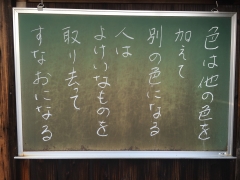 色は他の色を
加えて
別の色になる
人は
よけいなものを
取り去って
すなおになる